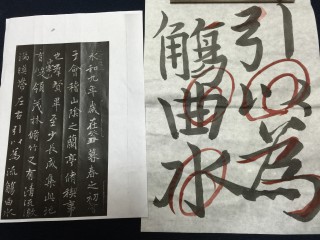 永和九年歲在癸丑暮春之初
于會稽山陰之蘭亭脩禊事
也羣賢畢至少長咸集此地
有崇山峻領茂林脩竹又有清流激
湍暎帶左右引以為流觴曲水
引以為
觴曲水